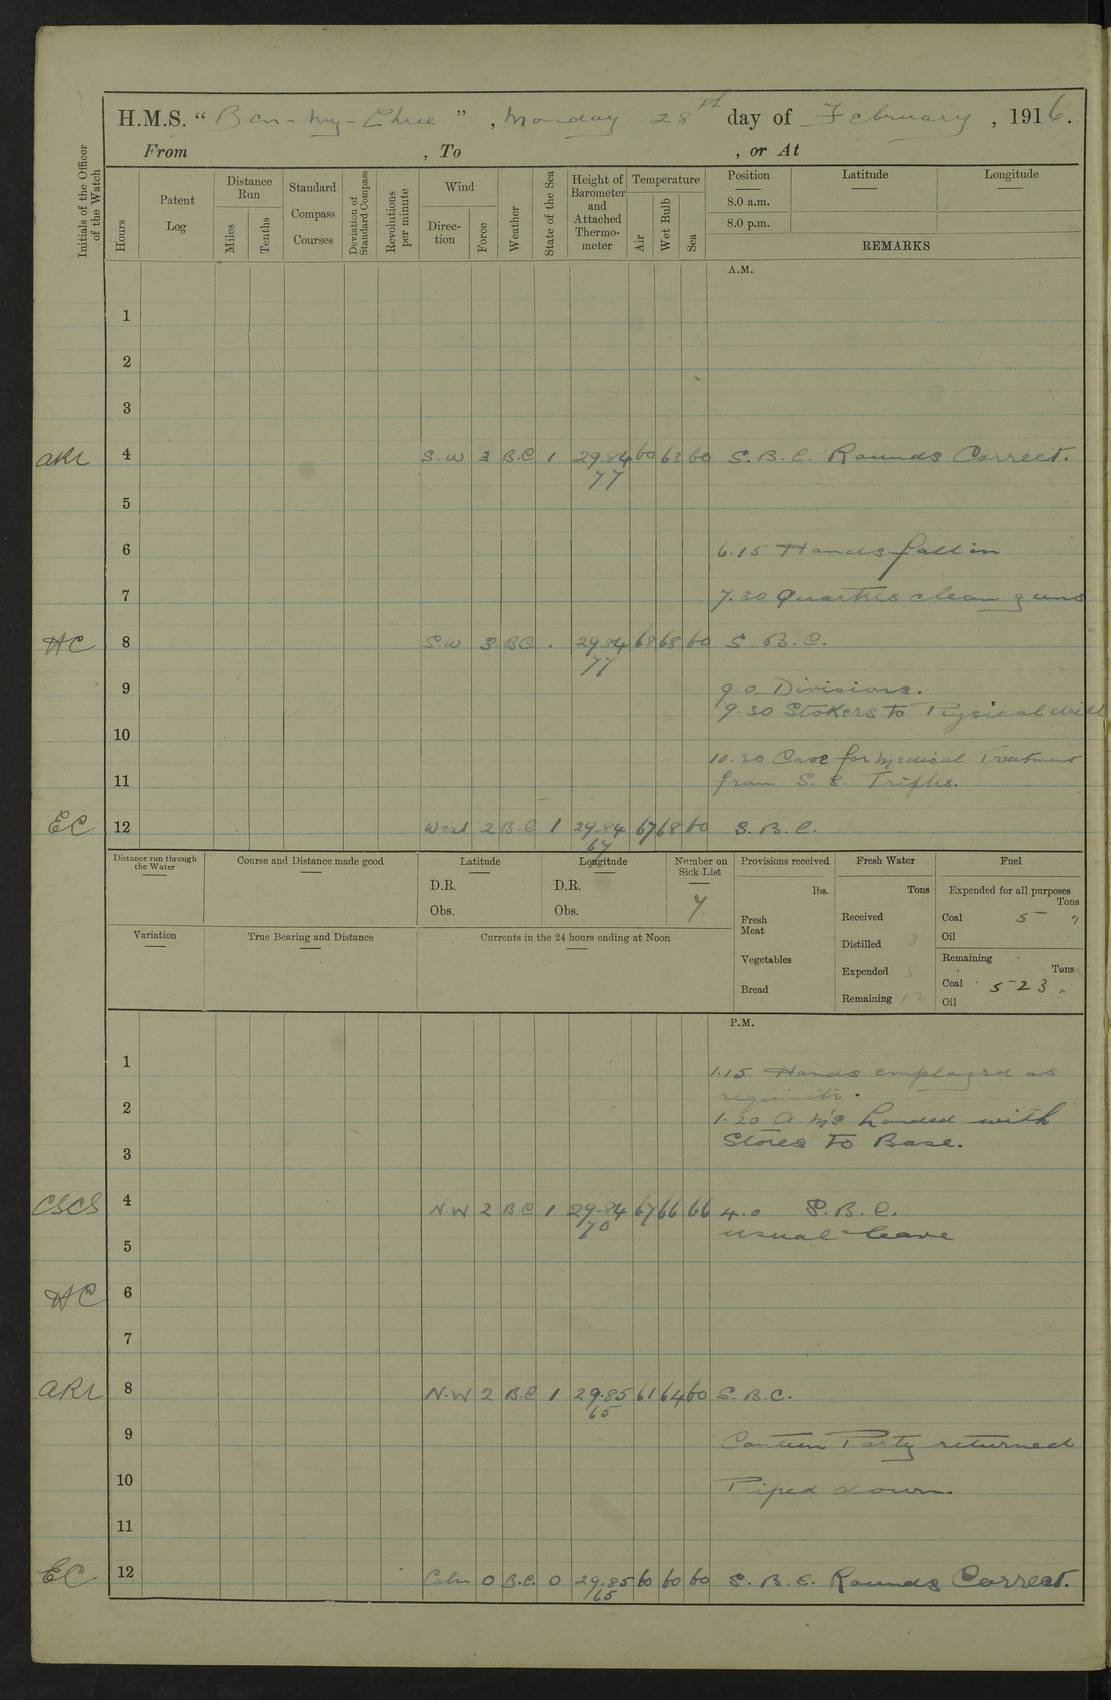 H.M.S. “ Ben-my-Chree ” , Monday 28th day of February , 1916.
From , To , or At
Initials of the Officer of the Watch
Hours
Patent Log
Distance Run
Miles
Tenths
Standard Compass Courses
Deviation of Standard Compass
Revolutions per minute
Wind
Direc-tion
Force
Weather
State of the Sea
Height of Barometer and Attached Thermo-meter
Temperature
Air
Wet Bulb
Sea
Position
8.0 a.m.
8.0 p.m.
Latitude
Longitude
REMARKS
A.M.
1
2
3
4 S.W 3 B.C 1 29.84 60 63 60 S.B.C. Rounds Correct.
77
5
6 6.15 Hands fall in
7 7.30 Quarters clean guns
HC 8 S.W 3 BC . 29.84 68 68 60 S.B.C.
77
9 9.0 Divisions.
9.30 Stokers to Physical drill
10
10.30 Case for Medical Treatment
11 from S.S.
EC 12 West 2 B.C 1 29.84 67 68 60 S.B.C.
67
Distance run through the Water
Course and Distance made good
Latitude
D.R.
Obs.
Longitude
D.R.
Obs.
Number on Sick List
7
Provisions received
lbs.
Fresh Meat
Vegetables
Bread
Fresh Water
Tons
Received
Distilled 3
Expended 3
Remaining 12
Fuel
Expended for all purposes
Tons
Coal 5 "
Oil
Remaining
Tons
Coal 523 "
Oil
Variation
True Bearing and Distance
Currents in the 24 hours ending at Noon
P.M.
1 1.15 Hands employed as
requisite.
2 1.20 landed with
3 Stores to Base.
CSCS 4 N.W 2 B.C 1 29.84 67 66 66 4.0 S.B.C.
70 usual leave
5
HC 6
7
8 N.W 2 B.C 1 29.85 61 64 60 S.B.C.
65
9 Canteen Party returned
10 Piped down.
11
EC 12 Calm 0 B.C. 0 29.85 60 60 60 S.B.C. Rounds Correct.
65